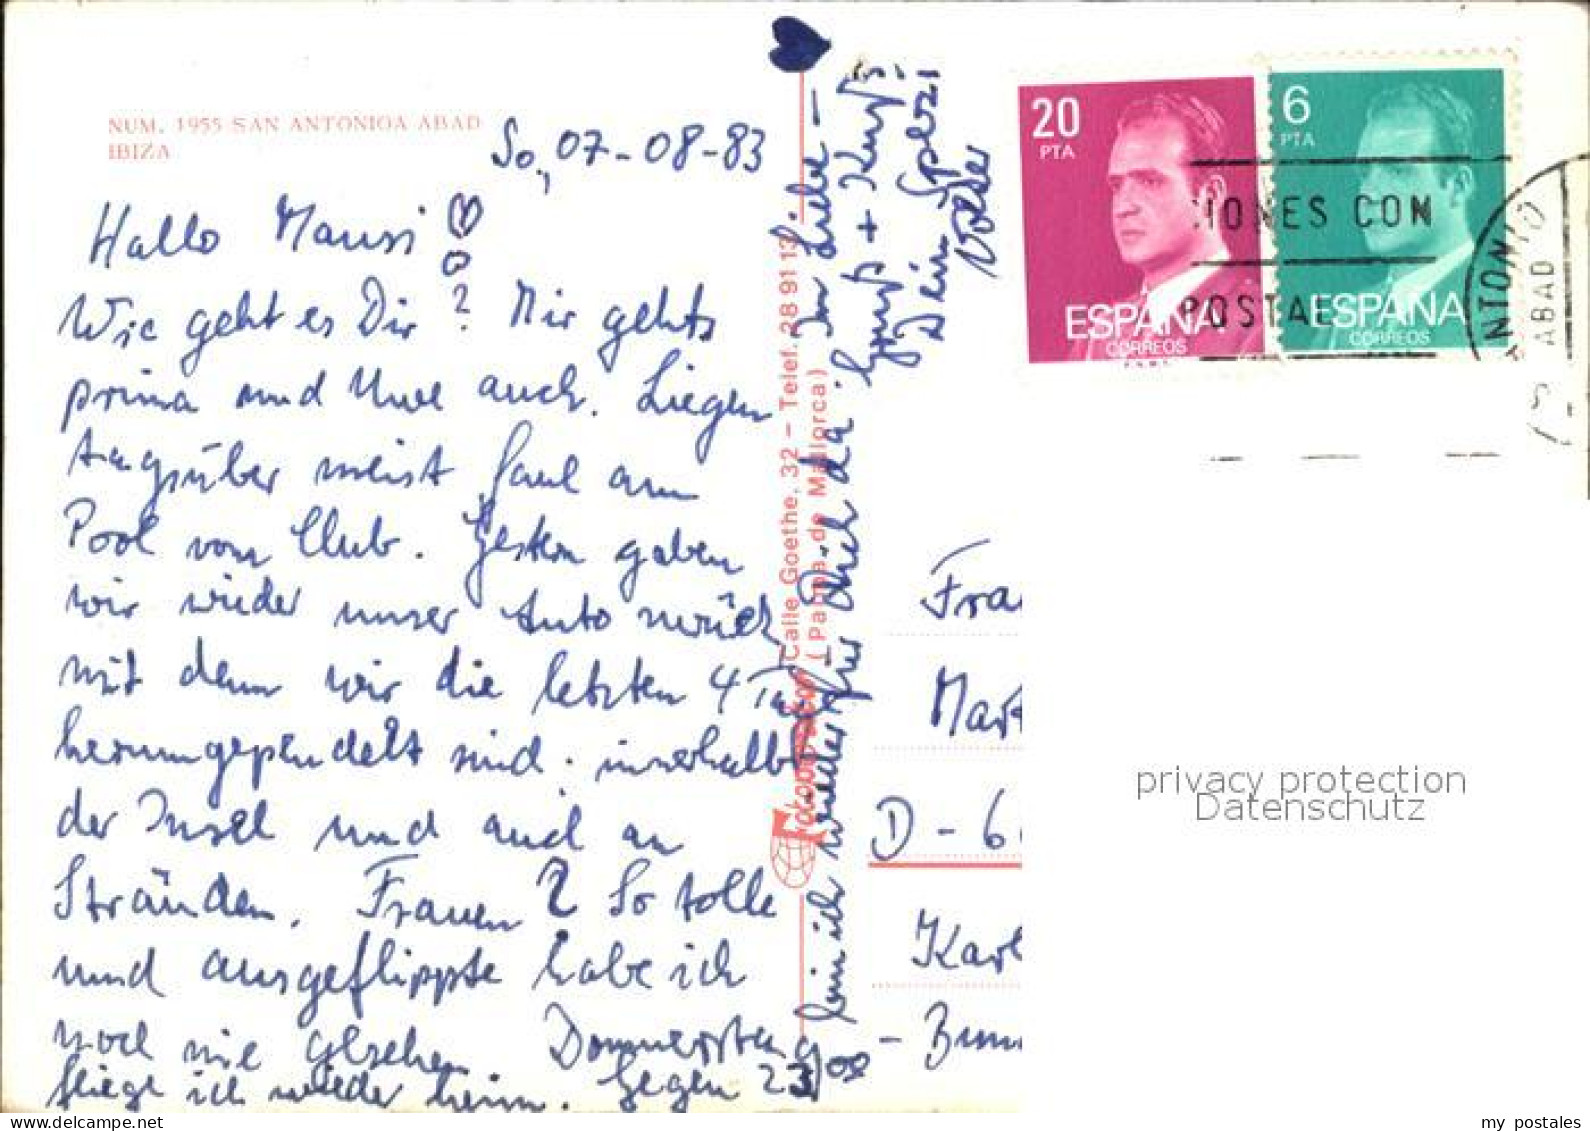 NUM. 1955 SAN ANTONIOA ABAD
IBIZA
So., 07-08-83
Hallo Mausi
Wie geht es Dir? Mir gehts
prima und Uwe auch. Liegen
tagsüber meist faul am
Pool vom Club. Gestern gaben
wir wieder unser Auto zurück
mit dem wir die letzten 4 Tage
herumgependelt sind. innerhalb
der Insel und auch an
Stränden. Frauen? So tolle
und ausgeflippte habe ich
noch nie gesehen. Donnerstag
fliege ich wieder heim. Gegen 23
bin ich wieder für Dich da. In Liebe -
Gruß + Kuß
Dein Spezi
Volker
Calle Goethe, 32 - Telef. 28 91 13
(Palma de Mallorca)
20
PTA
ESPAÑA
CORREOS
6
PTA
ESPAÑA
CORREOS
IONES CON
POSTAL
ANTONIO
ABAD
Frau
Mark
D - 6
Karl
- Brun
privacy protection
Datenschutz
my postales